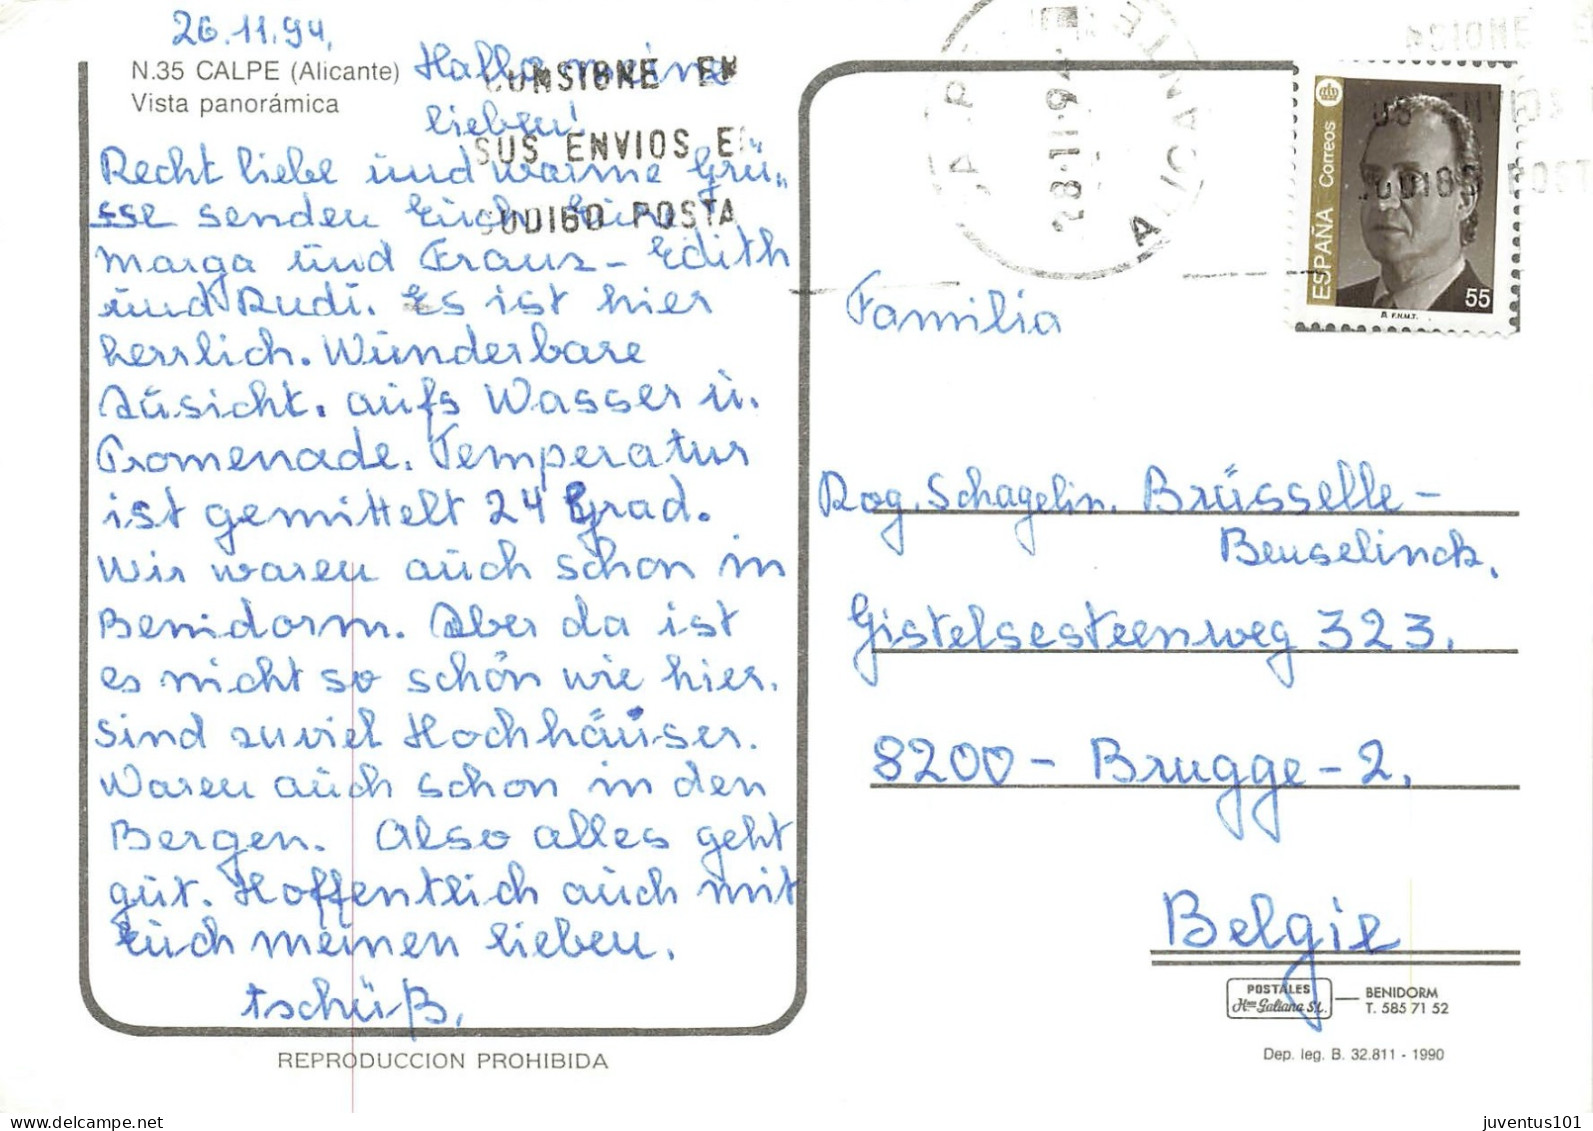 26.11.94.
N.35 CALPE (Alicante)
Vista panorámica
Hallo meine
lieben!
Recht liebe und warme Grü-
sse senden Euch Eure
Marga und Franz - Edith
und Rudi. Es ist hier
herrlich. Wunderbare
Aüsicht. aufs Wasser u.
Promenade. Temperatur
ist gemittelt 24 Grad.
Wir waren auch schon in
Benidorm. Aber da ist
es nicht so schön wie hier.
Sind zuviel Hochhäuser.
Waren auch schon in den
Bergen. Also alles geht
gut. Hoffentlich auch mit
Euch meinen lieben.
tschüß.
REPRODUCCION PROHIBIDA
CONSIGNE EN
SUS ENVIOS E
CODIGO POSTA
28-11-94
ALICANTE
ESPAÑA Correos
55
F.N.M.T.
Familia
Rog. Schagelin. Brüsselle-
Beuselinck.
Gistelsesteenweg 323.
8200 - Brugge - 2.
Belgie
POSTALES
Hnos Galiana S.L.
BENIDORM
T. 585 71 52
Dep. leg. B. 32.811 - 1990
juventus101